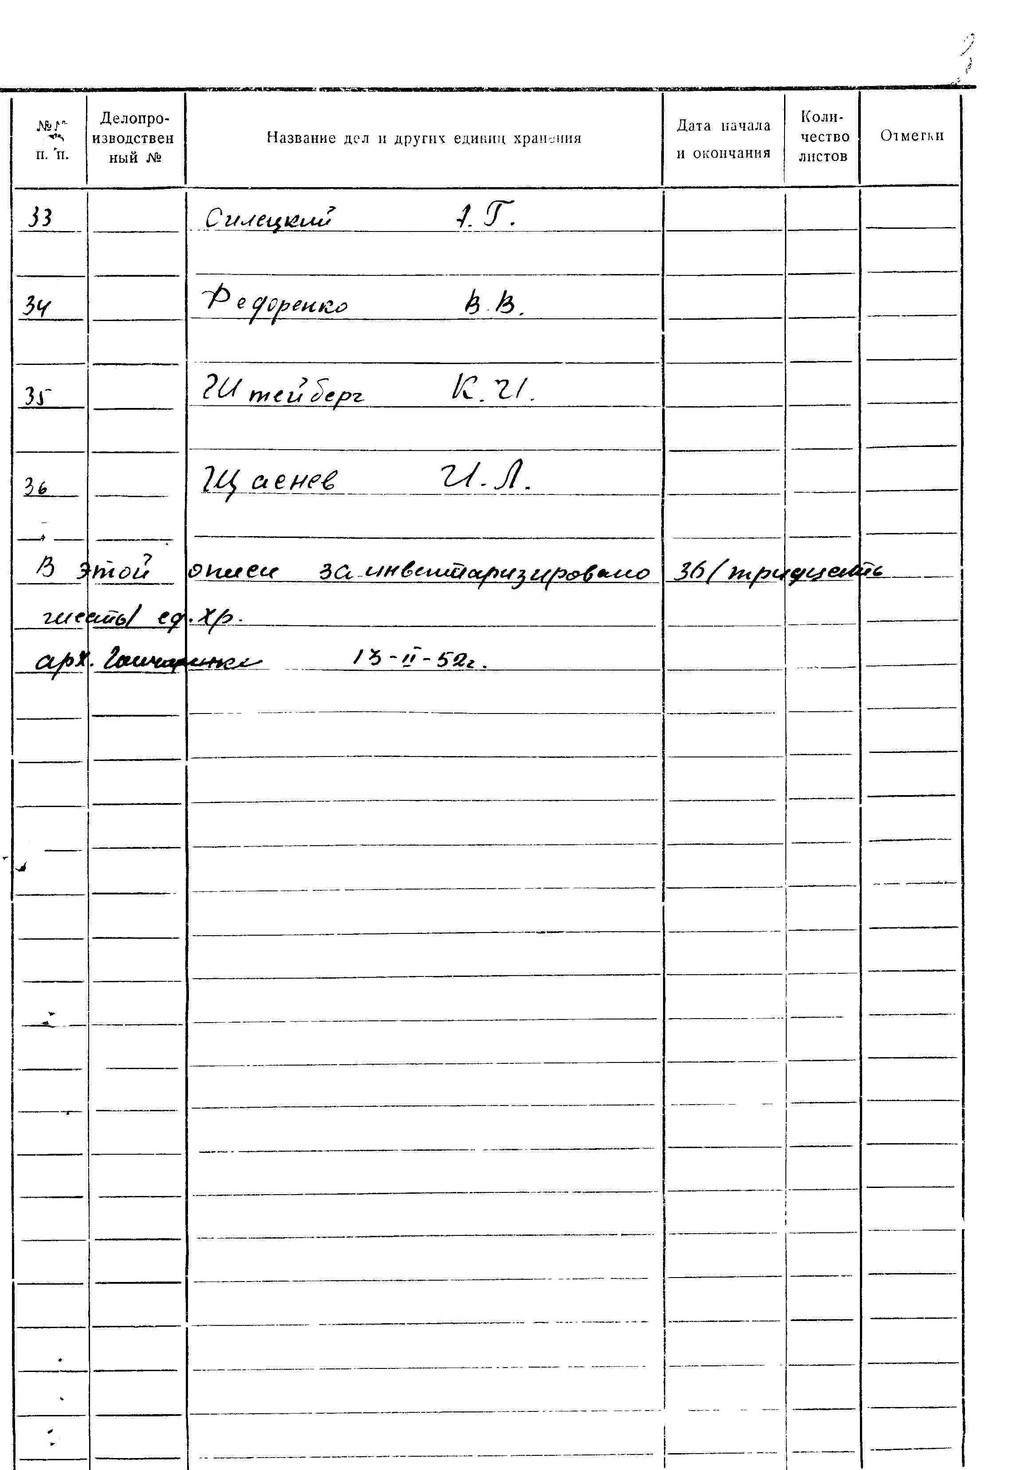 №№ п. п. Делопро-изводствен ный № Название дел и других единиц хранения Дата начала и окончания Коли-чество листов Отметки
33 Силецкий Г.
34 Федоренко В. В.
35 Штейберг К. И.
36 Щаенев И. Л.
В этой описи заинвентаризировано 36/тридцать
шесть/ ед. хр.
арх. 13-II-52г.